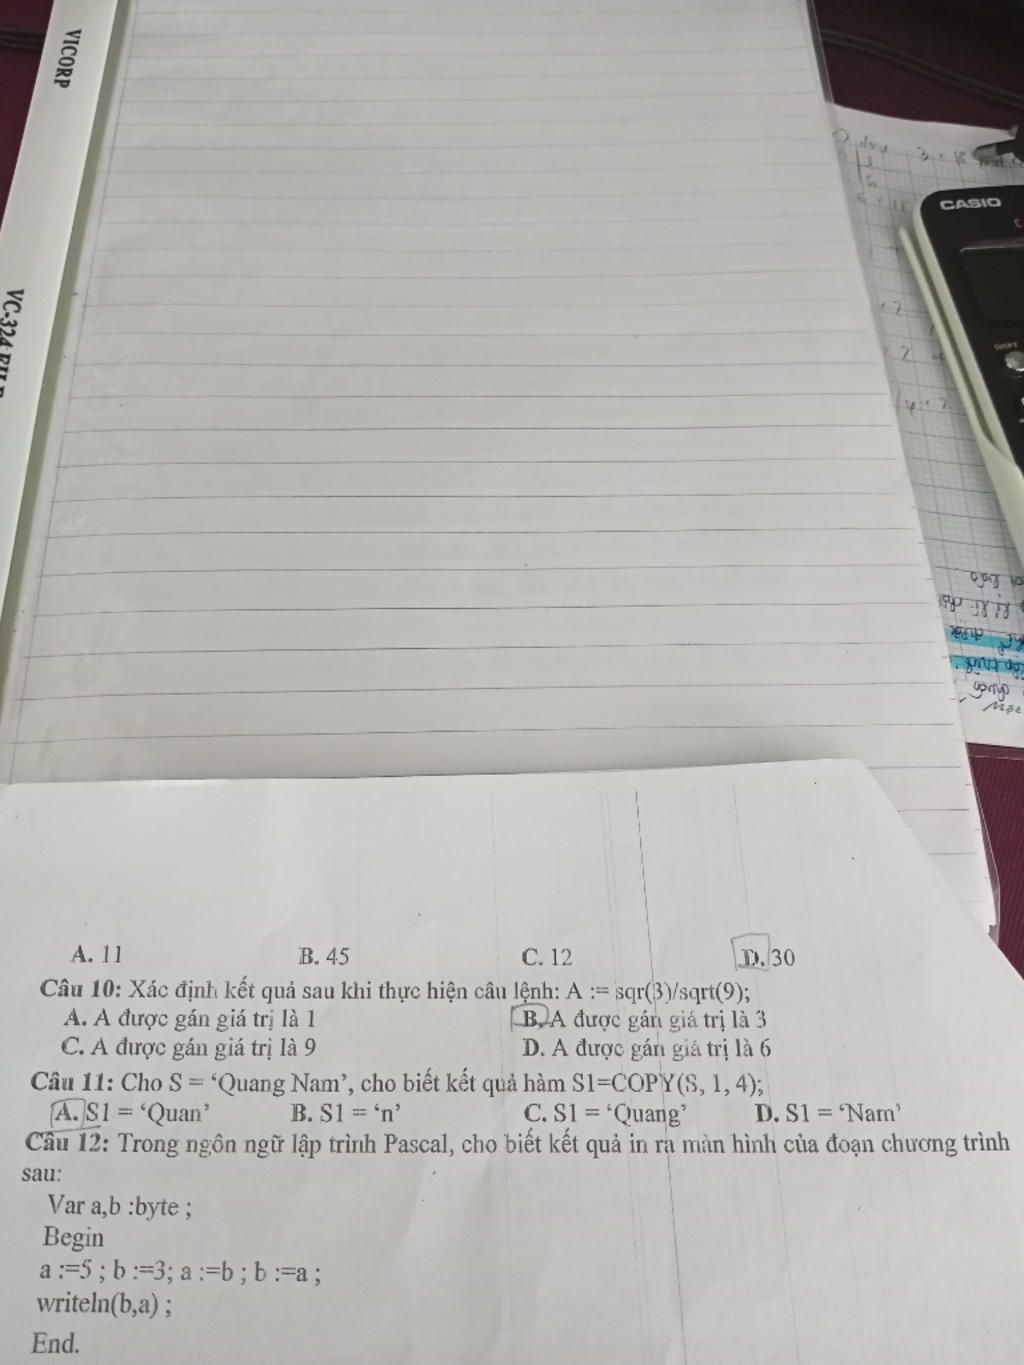 VICORP
VC-324 FILE
CASIO
SHIFT
A. 11 B. 45 C. 12 D. 30
Câu 10: Xác định kết quả sau khi thực hiện câu lệnh: A := sqr(3)/sqrt(9);
A. A được gán giá trị là 1 B. A được gán giá trị là 3
C. A được gán giá trị là 9 D. A được gán giá trị là 6
Câu 11: Cho S = ‘Quang Nam’, cho biết kết quả hàm S1=COPY(S, 1, 4);
A. S1 = ‘Quan’ B. S1 = ‘n’ C. S1 = ‘Quang’ D. S1 = ‘Nam’
Câu 12: Trong ngôn ngữ lập trình Pascal, cho biết kết quả in ra màn hình của đoạn chương trình
sau:
Var a,b :byte ;
Begin
a :=5 ; b :=3; a :=b ; b :=a ;
writeln(b,a) ;
End.